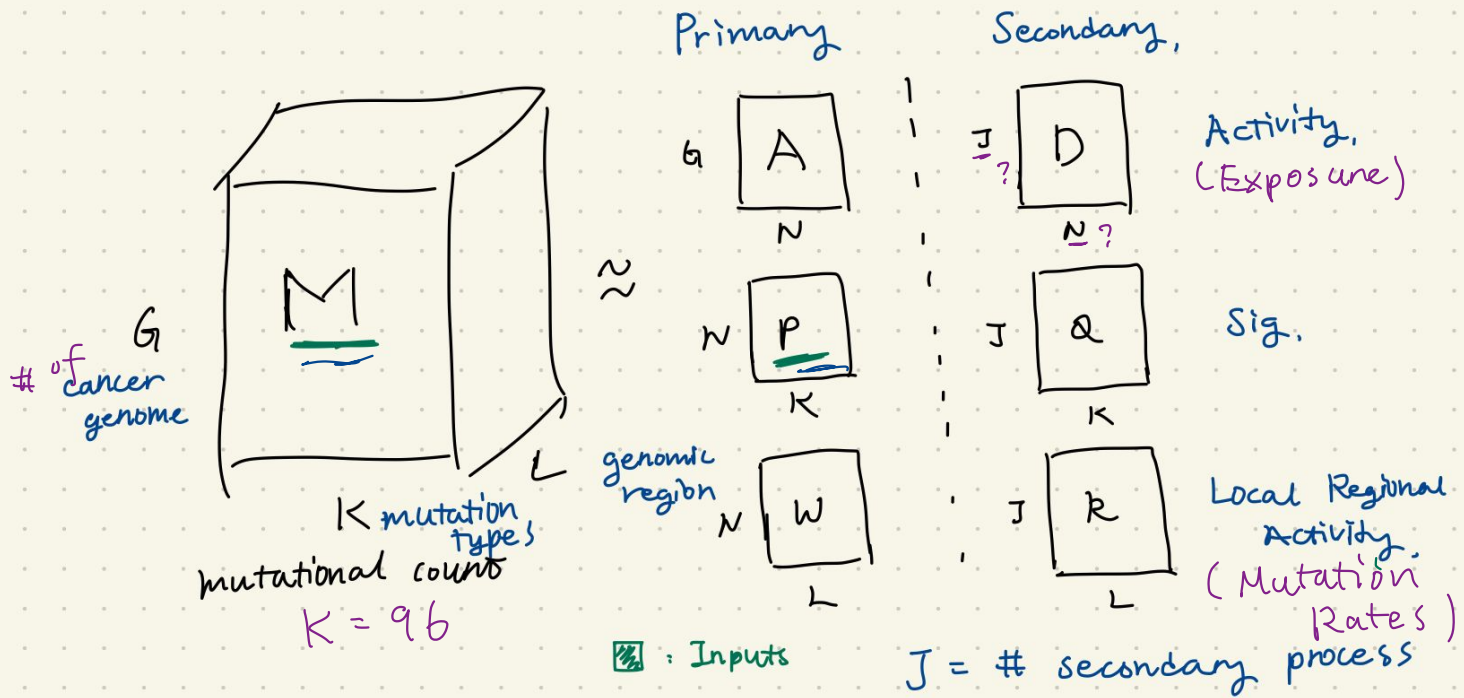 Primary
Secondary,
G
A
N
J
?
D
N ?
Activity,
(Exposure)
M
G
# of
cancer
genome
≈
N
P
K
J
Q
K
Sig,
L
K mutation
types
mutational count
K = 96
genomic
region
N
W
L
J
R
L
Local Regional
Activity,
(Mutation
Rates)
: Inputs
J = # secondary process